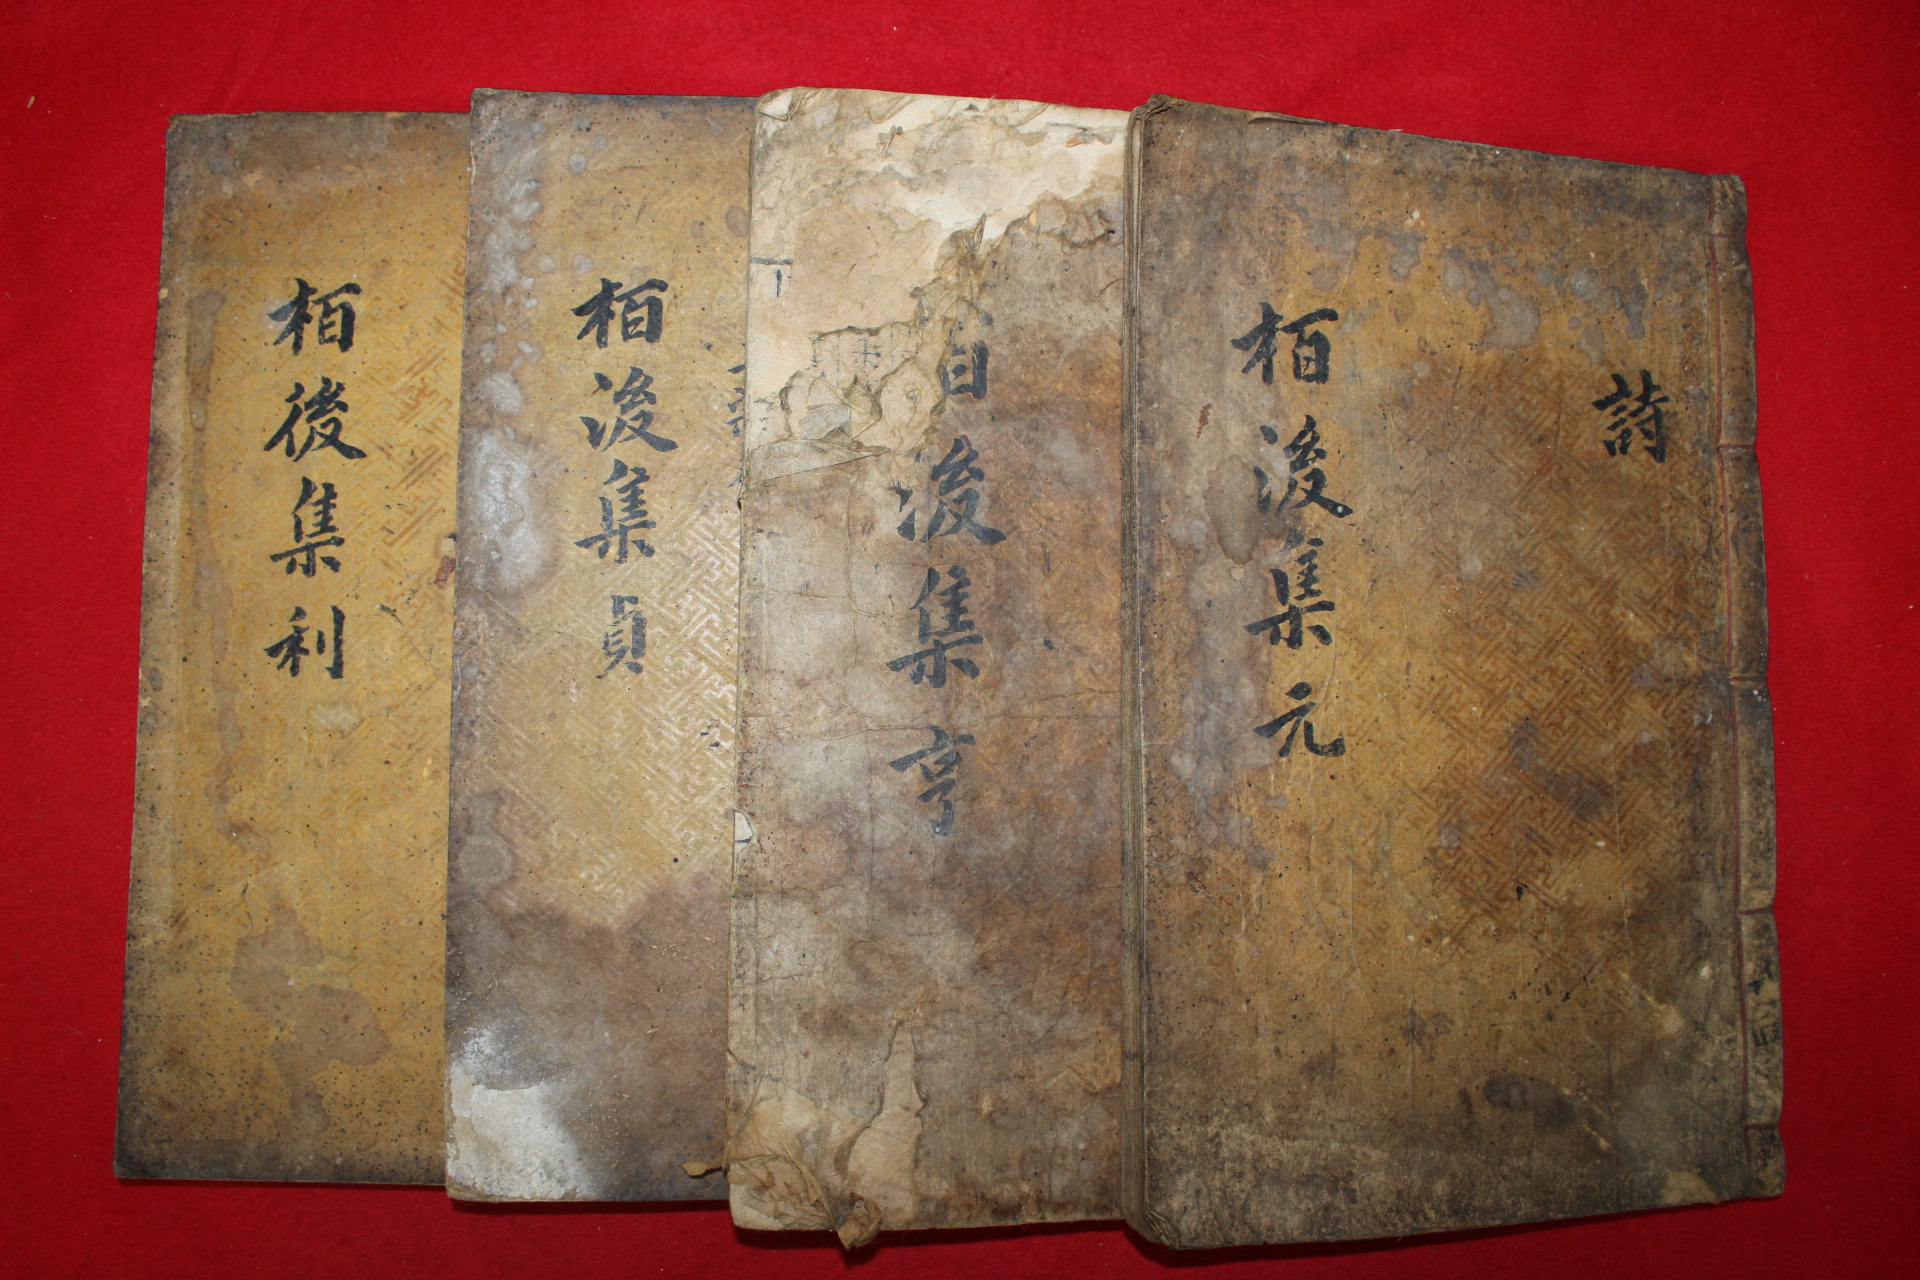 詩
栢後集 元
後集 亨
栢後集 貞
栢後集 利